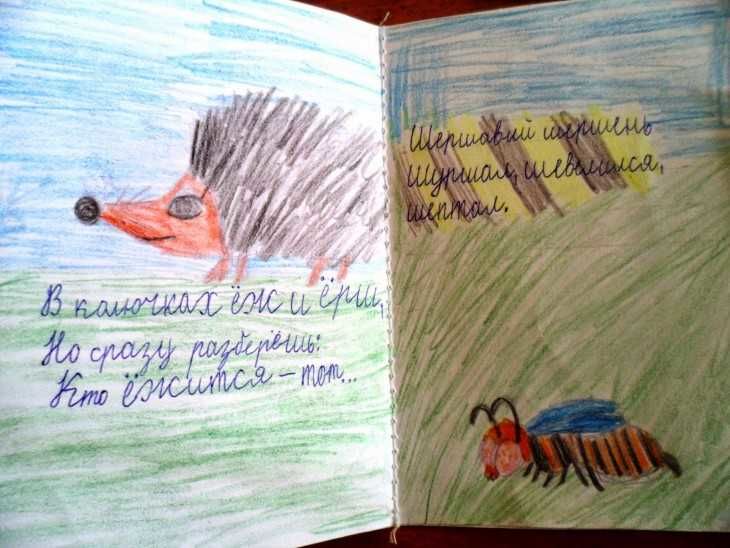 В колючках ёж и ёрш,
Но сразу разберёшь:
Кто ёжится – тот...
Шершавый шершень
Шуршал, шевелился,
шептал.